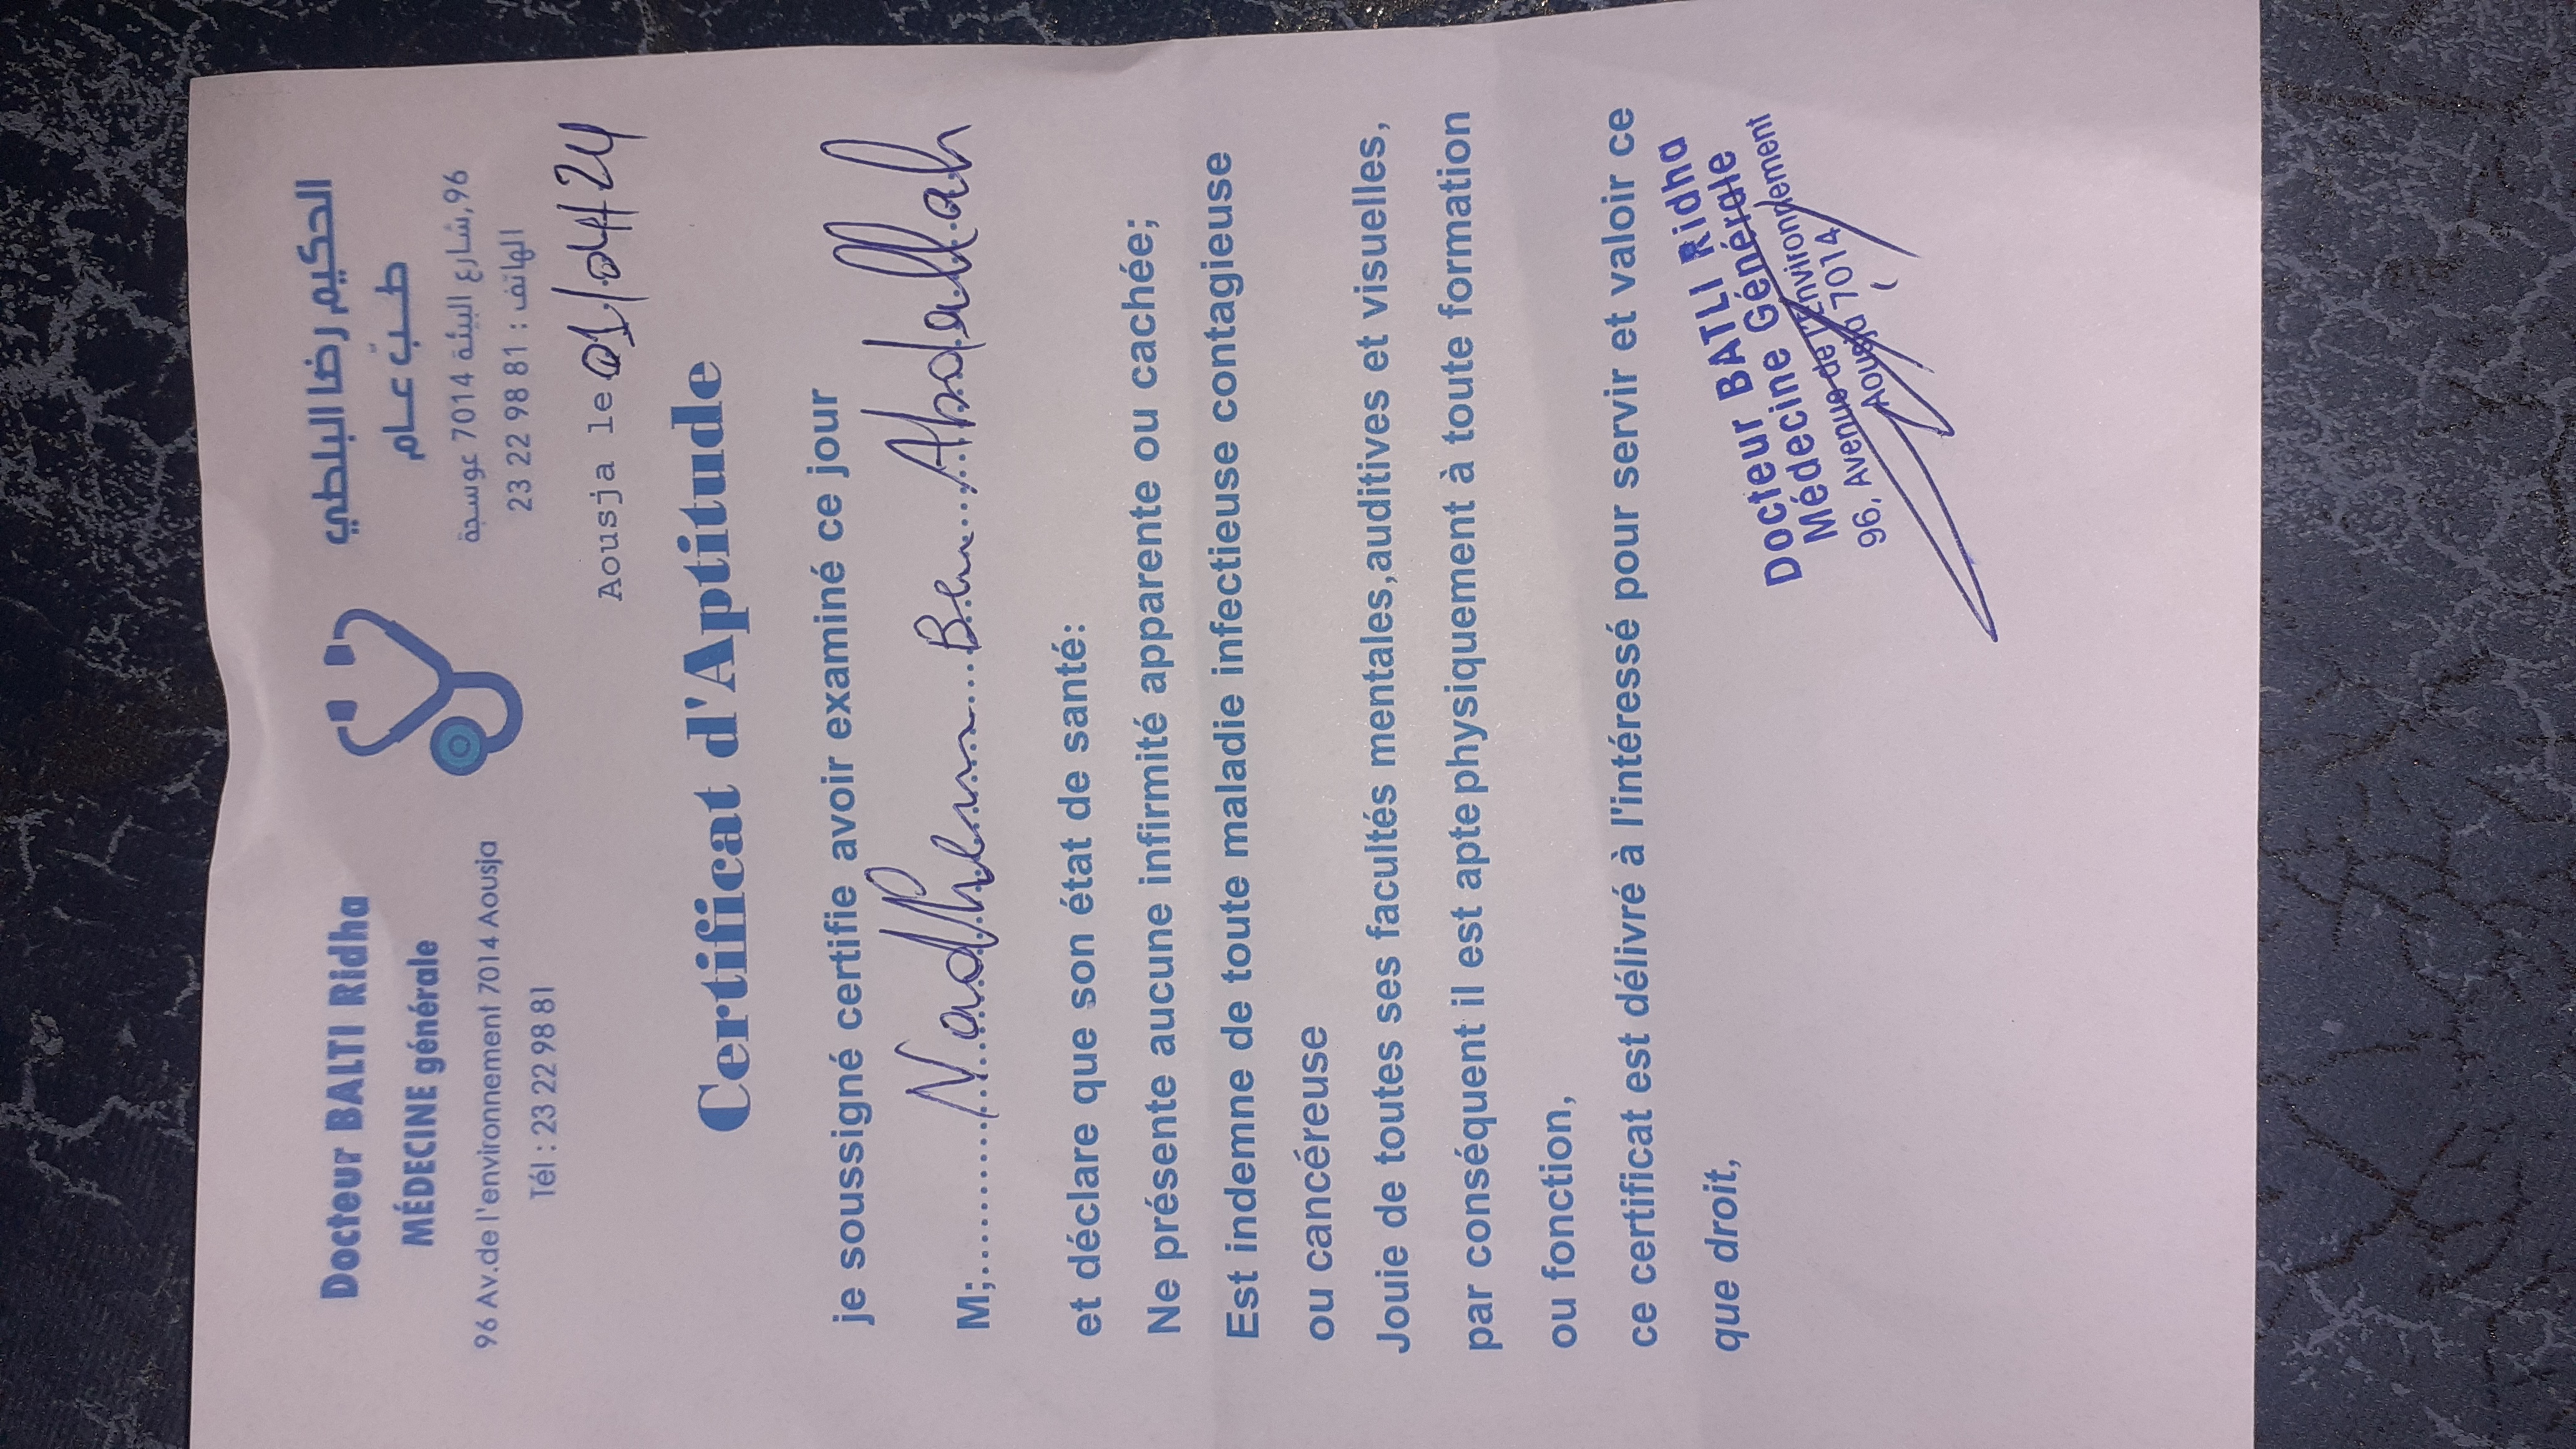 Docteur BALTI Ridha
MÉDECINE générale
96 Av.de l'environnement 7014 Aousja
Tél : 23 22 98 81
الحكيم رضا البلطي
طبّ عـــام
96,شارع البيئة 7014 عوسجة
الهاتف : 23 22 98 81
Aousja le 01/04/24
Certificat d'Aptitude
je soussigné certifie avoir examiné ce jour
M;.......... Ben Abdallah
et déclare que son état de santé:
Ne présente aucune infirmité apparente ou cachée;
Est indemne de toute maladie infectieuse contagieuse
ou cancéreuse
Jouie de toutes ses facultés mentales,auditives et visuelles,
par conséquent il est apte physiquement à toute formation
ou fonction,
ce certificat est délivré à l'intéressé pour servir et valoir ce
que droit,
Docteur BATLI Ridha
Médecine Générale
96, Avenue de l'Environnement
Aousja 7014